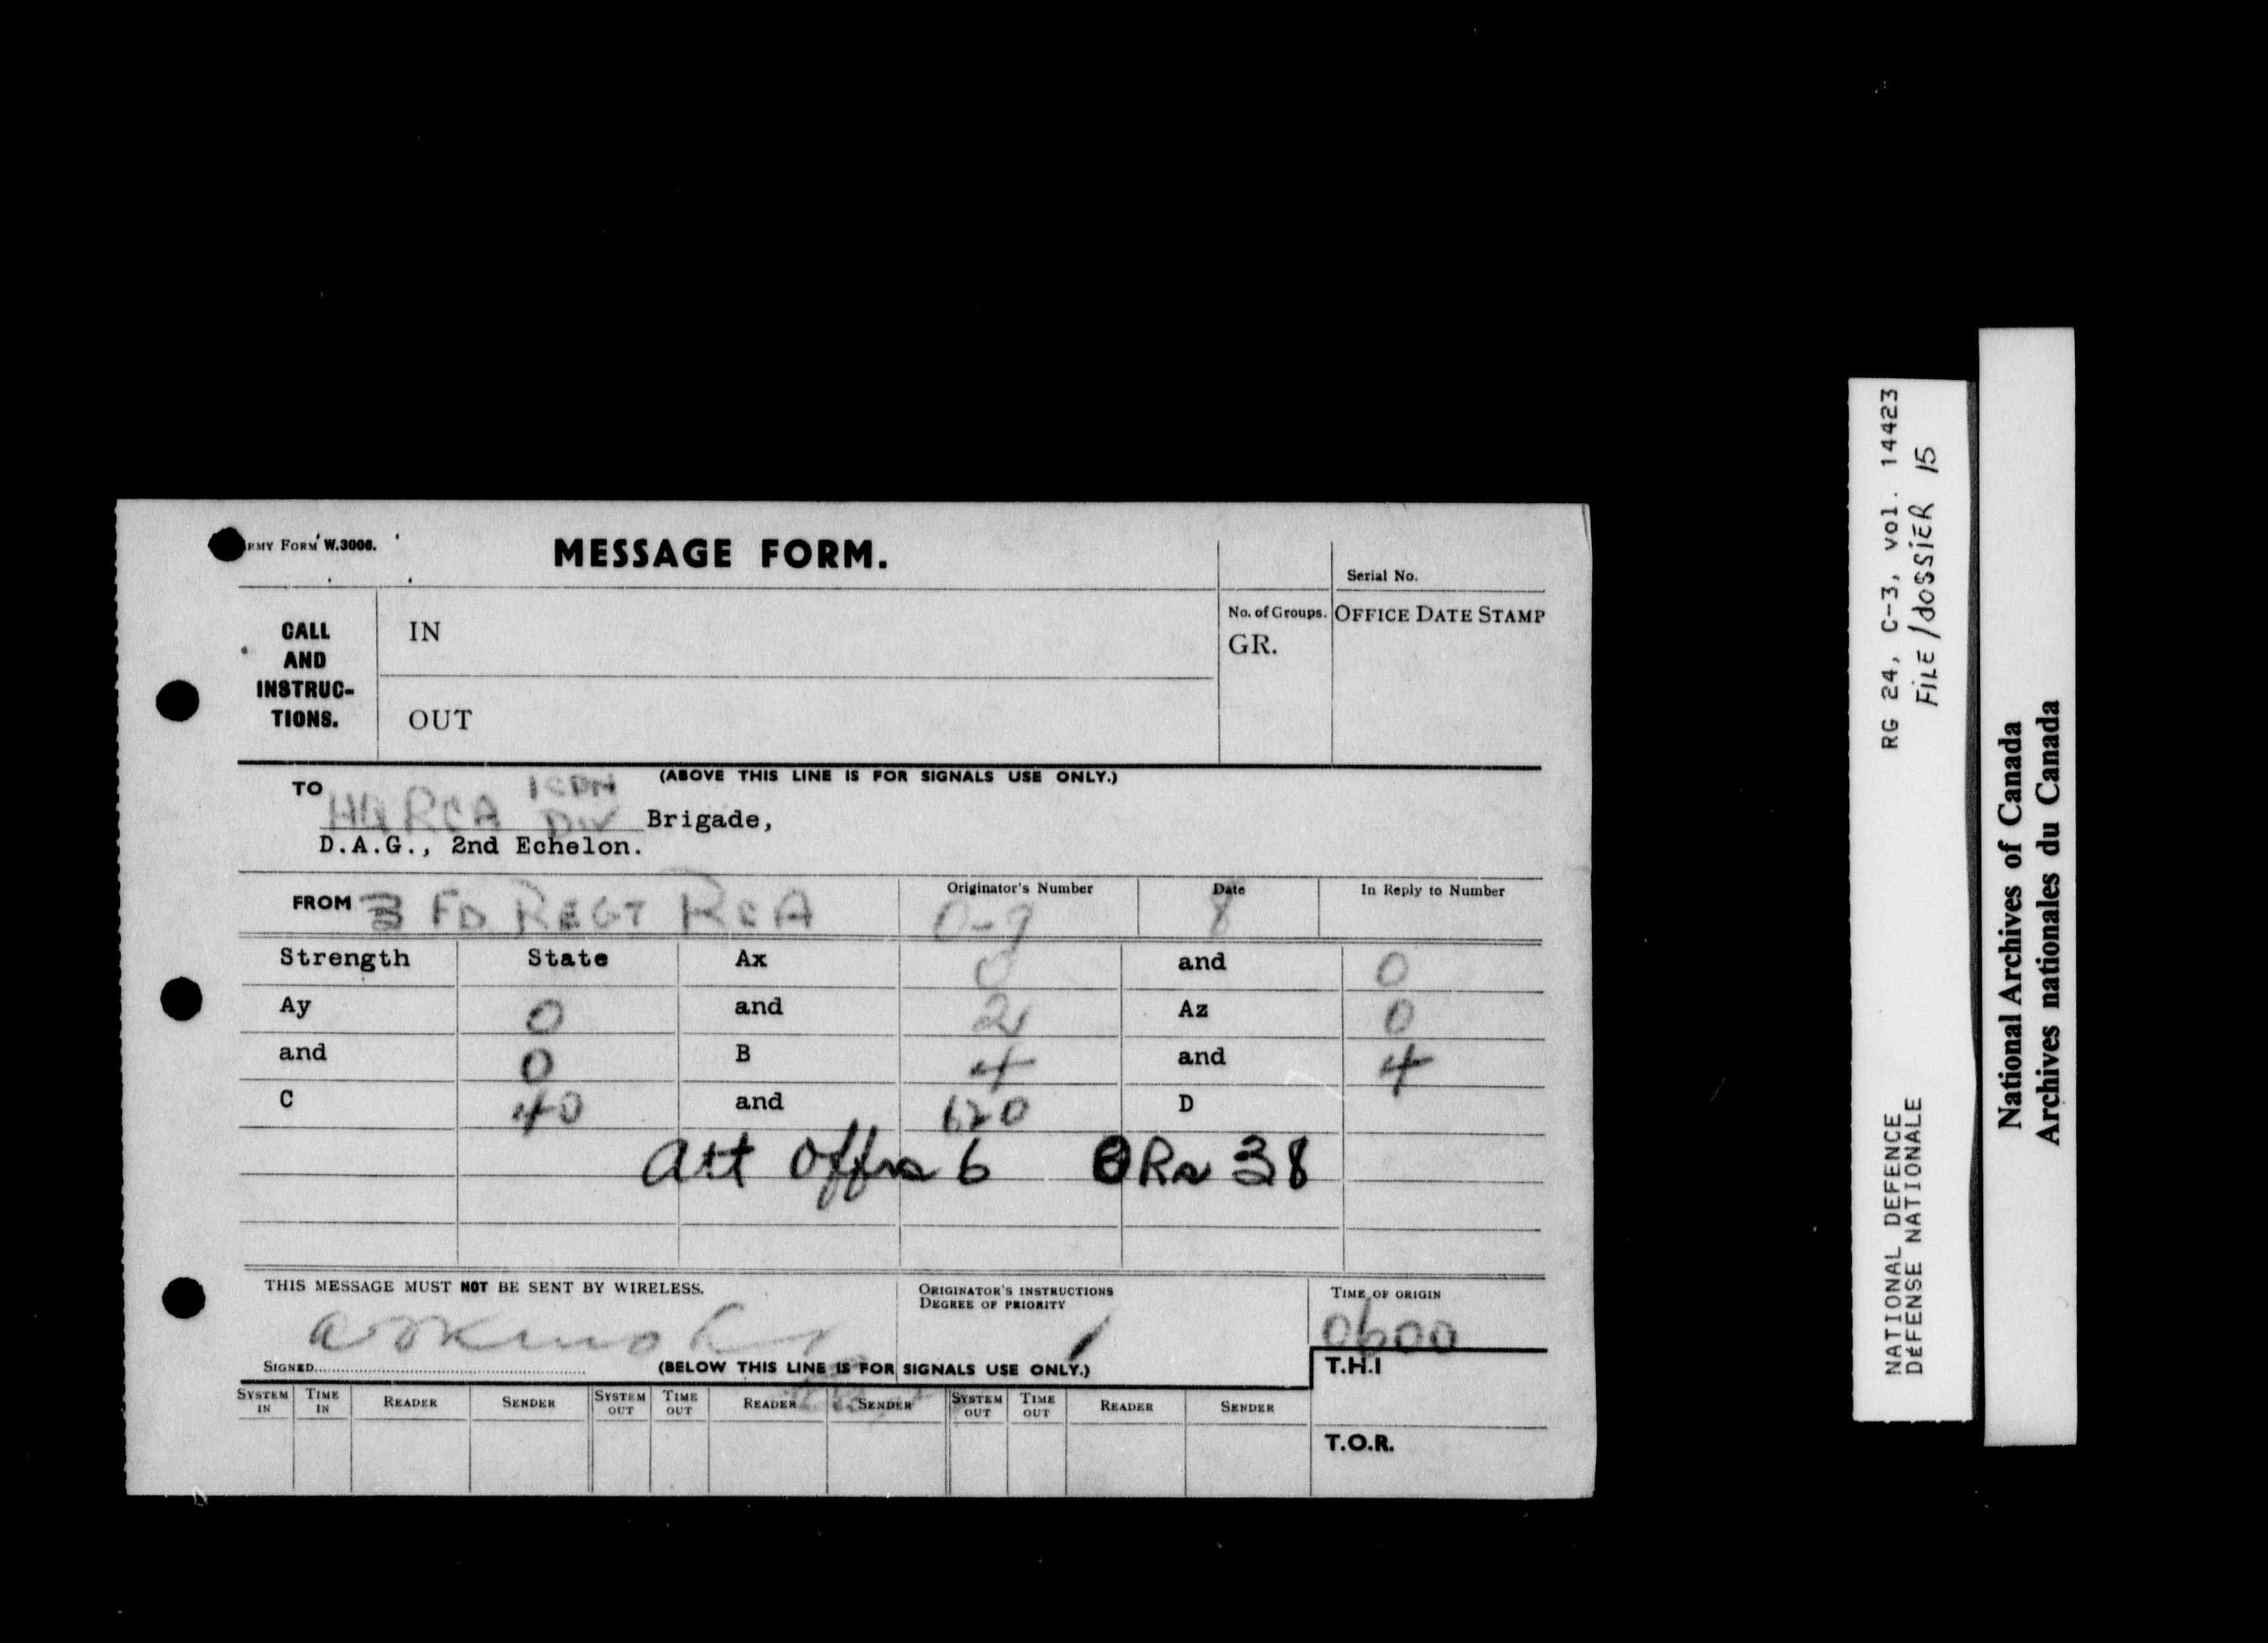 ARMY FORM W.3006.
MESSAGE FORM.
Serial No.
CALL AND INSTRUC-TIONS.
IN
No. of Groups.
GR.
OFFICE DATE STAMP
OUT
(ABOVE THIS LINE IS FOR SIGNALS USE ONLY.)
TO HQ RCA 1 CDN DIV Brigade,
D.A.G., 2nd Echelon.
FROM 3 FD REGT RCA
Originator's Number O-9
Date 8
In Reply to Number
Strength State Ax 0 and 0
Ay 0 and 2 Az 0
and 0 B 4 and 4
C 40 and 620 D
Att Offrs 6 ORs 38
THIS MESSAGE MUST NOT BE SENT BY WIRELESS.
ORIGINATOR'S INSTRUCTIONS
DEGREE OF PRIORITY
TIME OF ORIGIN
0600
SIGNED
(BELOW THIS LINE IS FOR SIGNALS USE ONLY.)
T.H.I
SYSTEM IN TIME IN READER SENDER SYSTEM OUT TIME OUT READER SENDER SYSTEM OUT TIME OUT READER SENDER
T.O.R.
RG 24, C-3, vol. 14423
FILE/dossier 15
NATIONAL DEFENCE
DÉFENSE NATIONALE
National Archives of Canada
Archives nationales du Canada